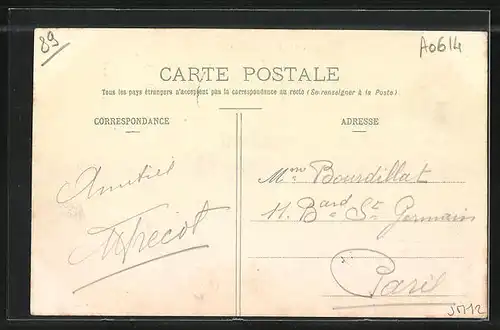 89
A0614
CARTE POSTALE
Tous les pays étrangers n'acceptent pas la correspondance au recto (Se renseigner à la Poste)
CORRESPONDANCE
ADRESSE
Amitiés
Mme Bourdillat
11. Bard St Germain
Paris